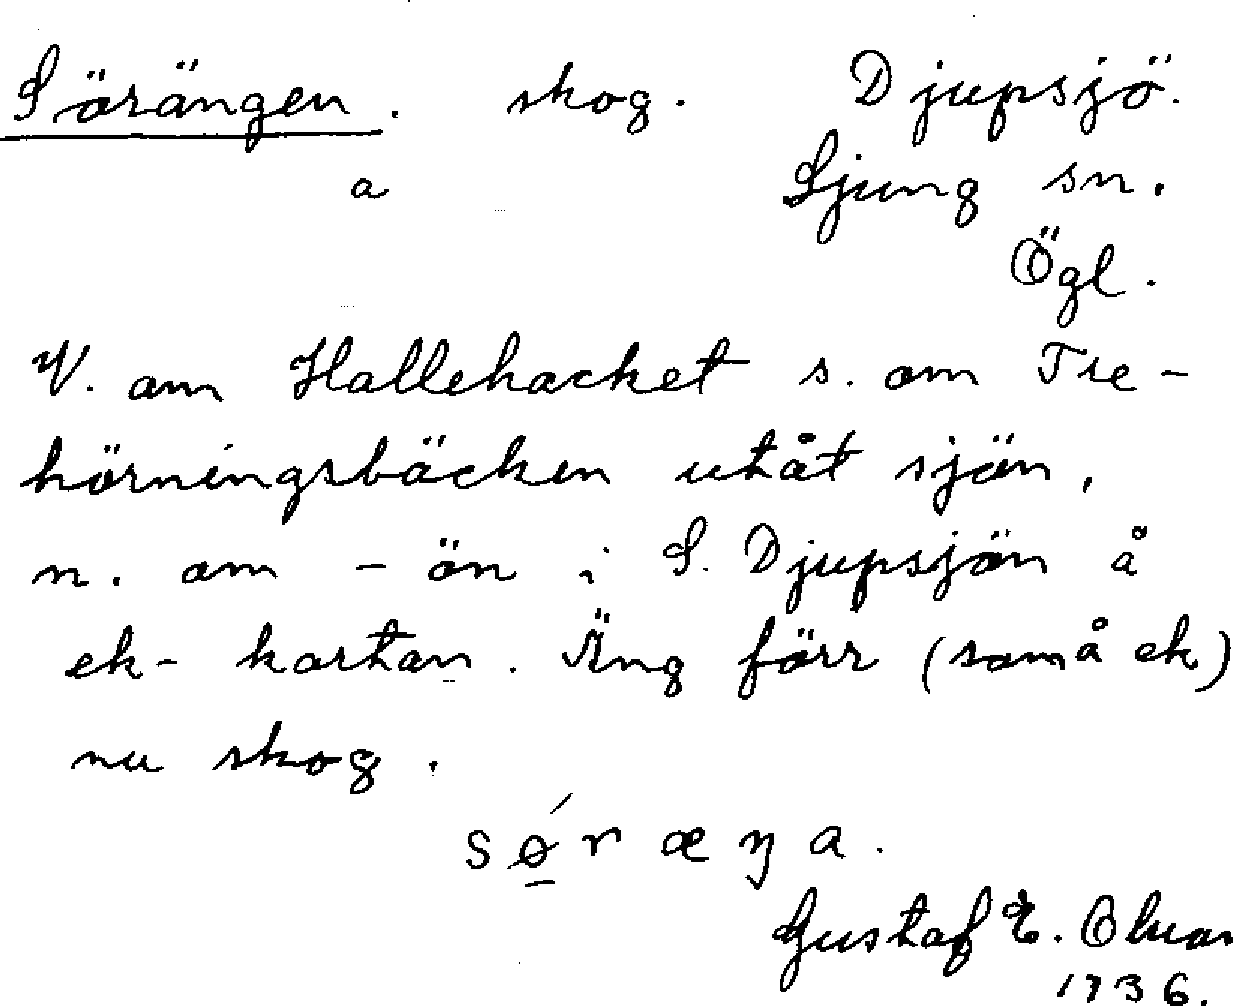 Sörängen. skog. Djupsjö.
a Ljung sn.
Ögl.
V. om Hallehacket s. om Tre-
hörningsbäcken utåt sjön,
n. om - ön i S. Djupsjön å
ek- kartan. Äng förr (som å ek)
nu skog.
sǿ̱ræŋa.
Gustaf E.
1936.